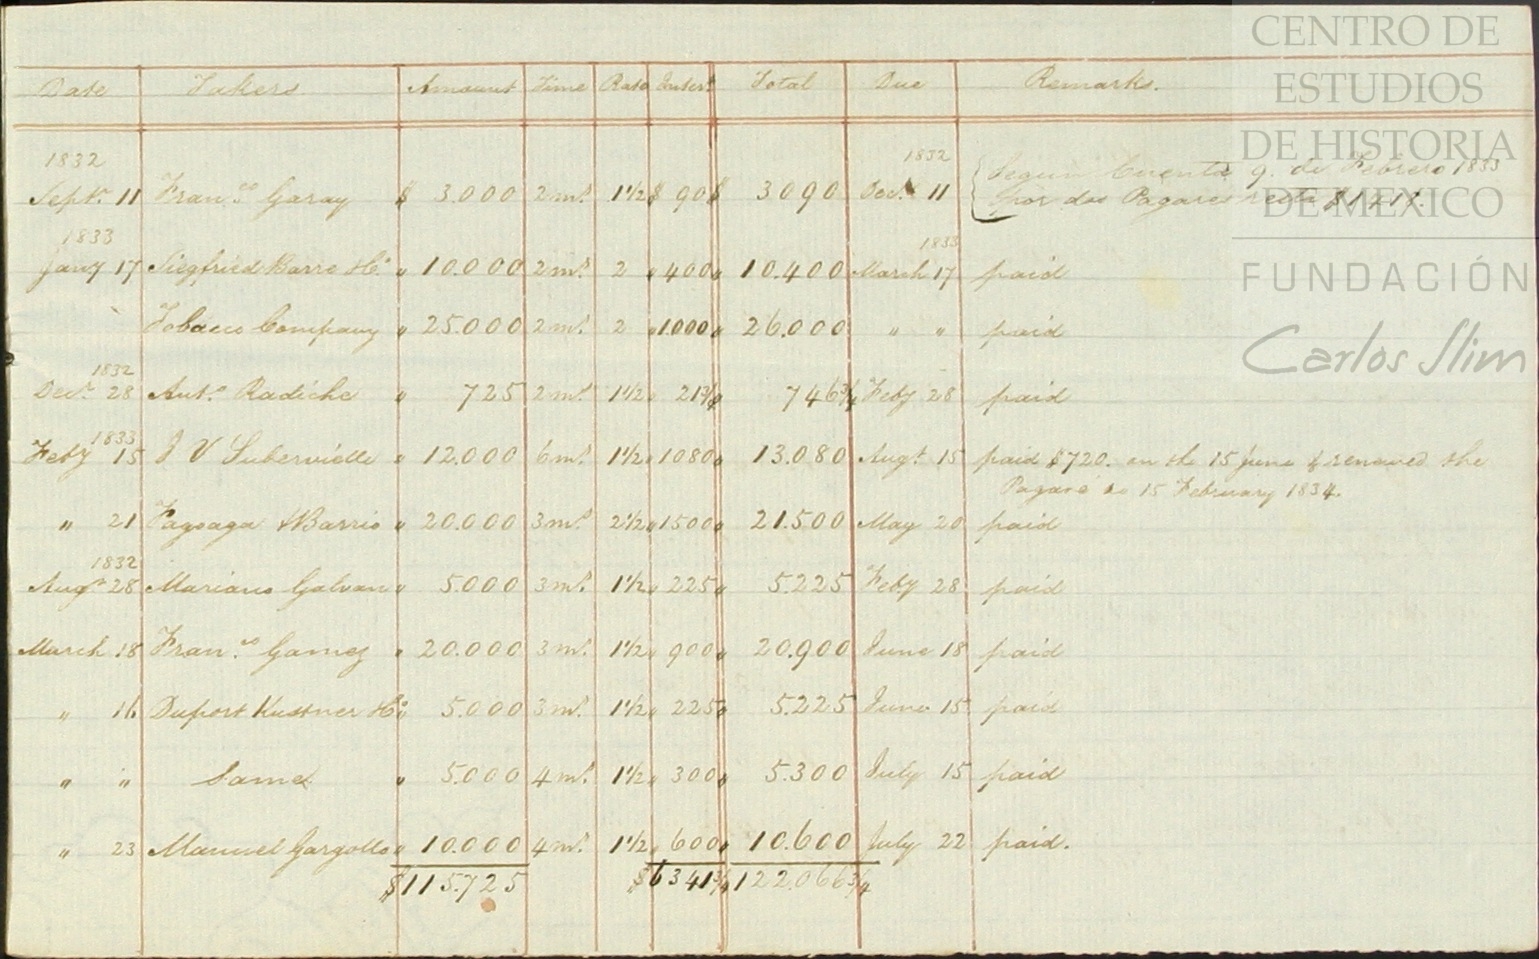 CENTRO DE
ESTUDIOS
DE HISTORIA
DE MEXICO
FUNDACIÓN
Carlos Slim
Date Takers Amount Time Rate Interᵗ Total Due Remarks.
1832 1832 Segun Cuenta 9. de Febrero 1833
Septʳ 11 Franᶜᵒ Garay $ 3.000 2mˢ 1½ $ 90 $ 3090 Decʳ 11 por dos Pagares resta
1833 1833
Jany 17 Siegfried Barre &Cᵒ " 10.000 2mˢ 2 " 400 " 10.400 March 17 paid
Tobacco Company " 25.000 2mˢ 2 " 1.000 " 26.000 " " paid
1832
Decʳ 28 Antᵒ Radiche " 725 2mˢ 1½ " 21¾ " 746¾ Feby 28 paid
1833
Feby 15 J V Subervielle " 12.000 6mˢ 1½ " 1080 " 13.080 Augᵗ 15 paid $720. on the 15 June & renewed the
Pagaré to 15 February 1834.
" 21 Fagoaga & Barrio " 20.000 3mˢ 2½ " 1500 " 21.500 May 20 paid
1832
Augᵗ 28 Mariano Galvan " 5.000 3mˢ 1½ " 225 " 5.225 Feby 28 paid
March 18 Franᶜᵒ Gamez " 20.000 3mˢ 1½ " 900 " 20.900 June 18 paid
" 16 Duport Kustner &Cᵒ " 5.000 3mˢ 1½ " 225 " 5.225 June 15 paid
" " Same " 5.000 4mˢ 1½ " 300 " 5.300 July 15 paid
" 23 Manuel Gargollo " 10.000 4mˢ 1½ " 600 " 10.600 July 22 paid.
$115.725 $6341¾ 122.066¾